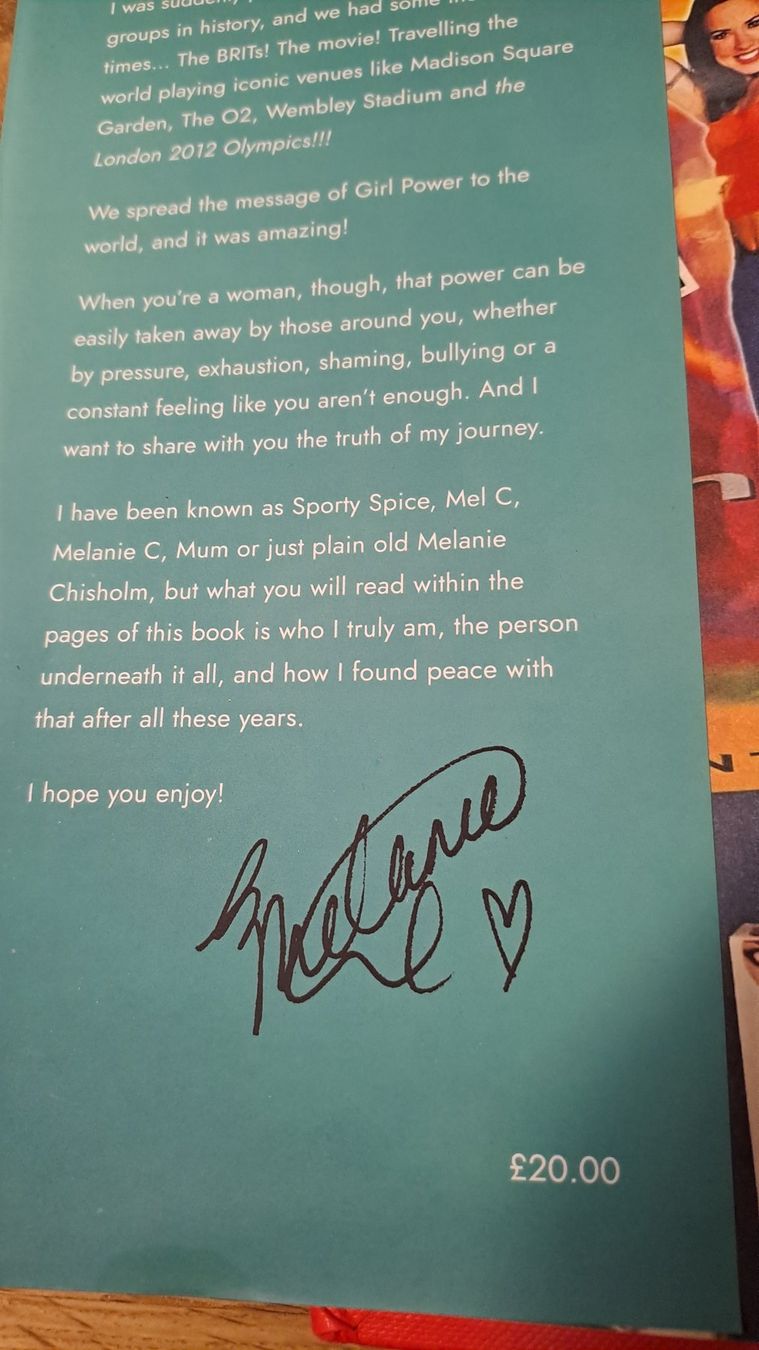 I was
groups in history, and we had some
times... The BRITs! The movie! Travelling the
world playing iconic venues like Madison Square
Garden, The O2, Wembley Stadium and the
London 2012 Olympics!!!
We spread the message of Girl Power to the
world, and it was amazing!
When you're a woman, though, that power can be
easily taken away by those around you, whether
by pressure, exhaustion, shaming, bullying or a
constant feeling like you aren't enough. And I
want to share with you the truth of my journey.
I have been known as Sporty Spice, Mel C,
Melanie C, Mum or just plain old Melanie
Chisholm, but what you will read within the
pages of this book is who I truly am, the person
underneath it all, and how I found peace with
that after all these years.
I hope you enjoy!
Melanie C
£20.00